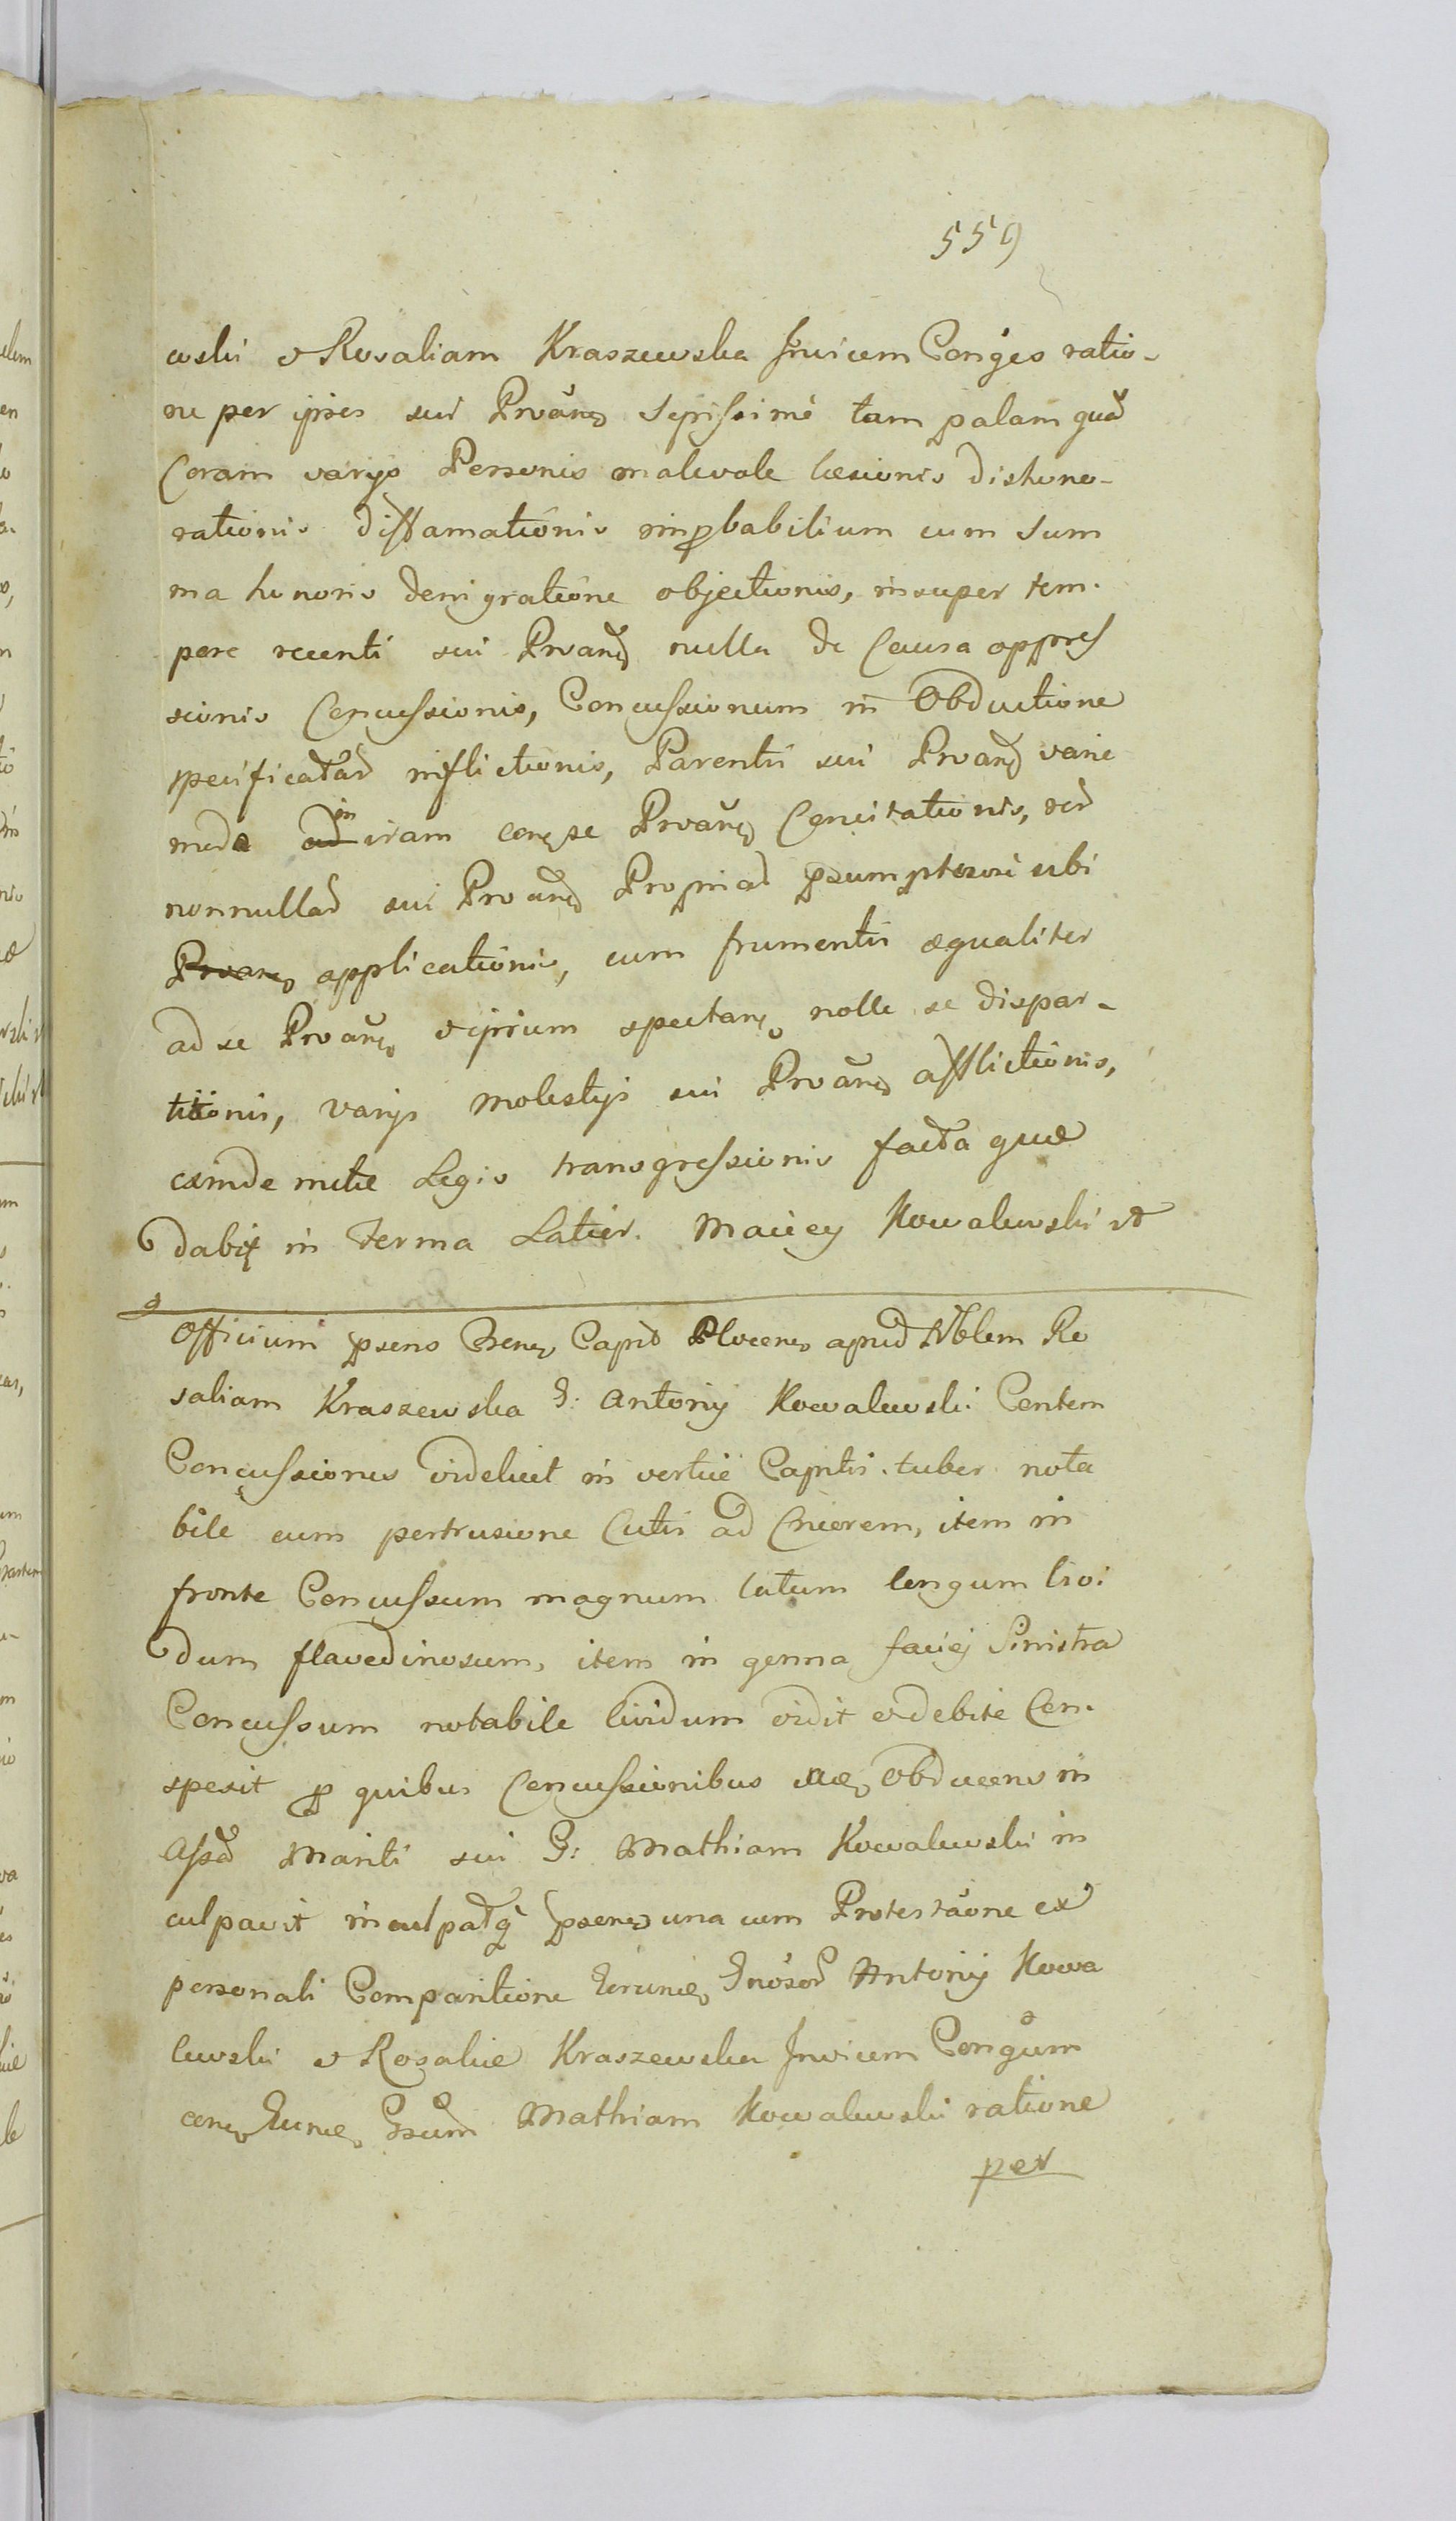 559
wski et Rosaliam Kraszewska Invicem Conġes ratio-
ne per ipsos sui Proanꝫ Sepissime tam palam quā
Coram varijs Personis malevole laesionis dishono-
rationis diffamationis improbabilium cum Sum
ma honoris denigratione objectionis, insuper tem-
pore recenti sui Proanꝫ nulla de Causa oppres
sionis Concussionis, Concussionum in Obductione
specificatar inflictionis, Parentis sui Proanꝫ vario
modo in iram conꝫ se Proanꝫ Concitationis, rer
nonnullar sui Proanꝫ Propriar psumptuose sibi
applicationis, cum frumentis aequaliter
ad se Proanꝫ et ipsum spectanꝫ nolle se dispar-
titionis, varijs molestijs sui Proanꝫ afflictionis,
eamde mitte Legis transgressionis facta quae
dabit in Terma Latior. Maciey Kowalewski et
Officium psens Crenꝫ Capit Plocenꝫ apud Nblem Ro
saliam Kraszewska G: Antonij Kowalewski Contem
Concussiones videlicet in vertice Capitis tuber nota
bile cum pertrusione Cutis ad Cruorem, item in
fronte Concussum magnum latum longum livi-
dum flavedinosum, item in genna faciej Sinistra
Concussum notabile lividum vidit et debite Con-
spexit p quibus Concussionibus Obducens in
Assa Mariti sui G: Mathiam Kowalewski in
culpavit inculpatq psenꝫ una cum Protestaone ex
personali Comparitione Gnosor Antonij Kowa
lewski et Rozalie Kraszewska Invicem Congum
conꝫ Gsum Mathiam Kowalewski ratione
per